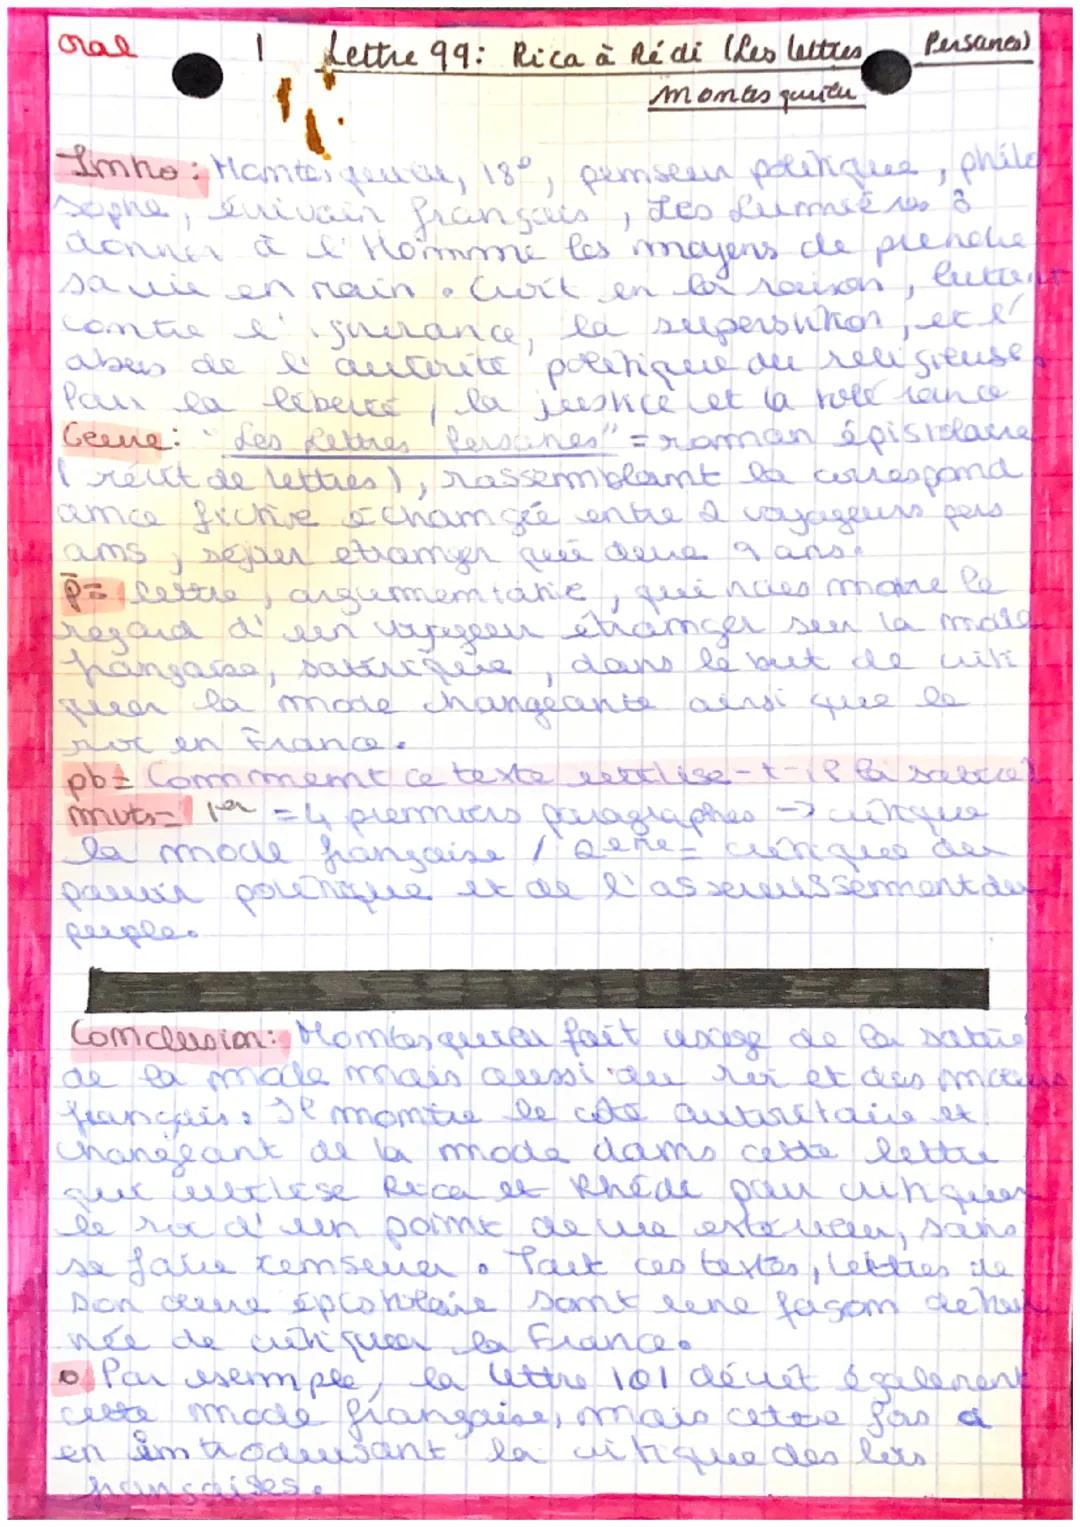 oral
1 Lettre 99: Rica à Rédi (Les lettres Persanes)
Montesquieu
Intro: Montesquieu, 18e, penseur politique, philo
sophe, écrivain français, Les Lumières :
donner à l'Homme les moyens de prendre
sa vie en main. Croit en la raison, luttent
contre l'ignorance, la superstition, et l'
abus de l'autorité politique ou religieuse,
Pour la liberté, la justice et la tolérance
Oeuvre: "Les Lettres Persanes" = roman épistolaire
(récit de lettres), rassemblant la correspond
ance fictive échangée entre 2 voyageurs pers
ans, séjour étranger qui dure 9 ans.
p= lettre, argumentative, qui nous montre le
regard d'un voyageur étranger sur la mode
française, satirique, dans le but de criti
quer la mode changeante ainsi que le
roi en France.
pb= Comment ce texte utilise-t-il la satire?
mvts= 1er = 4 premiers paragraphes -> critique
la mode française / 2eme = critique du
pouvoir politique et de l'asservissement du
peuple.
Conclusion: Montesquieu fait usage de la satire
de la mode mais aussi du roi et des moeurs
français. Il montre le côté autoritaire et
changeant de la mode dans cette lettre
qui utilise Rica et Rhédi pour critiquer
le roi d'un point de vue extérieur, sans
se faire censurer. Tout ces textes, lettres de
son oeuvre épistolaire sont une façon
de critiquer la France.
o Par exemple, la lettre 101 décrit également
cette mode française, mais cette fois
en introduisant la critique des lois
françaises.